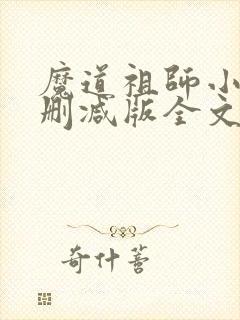 魔道祖師小
刪减版全文
奇什薯